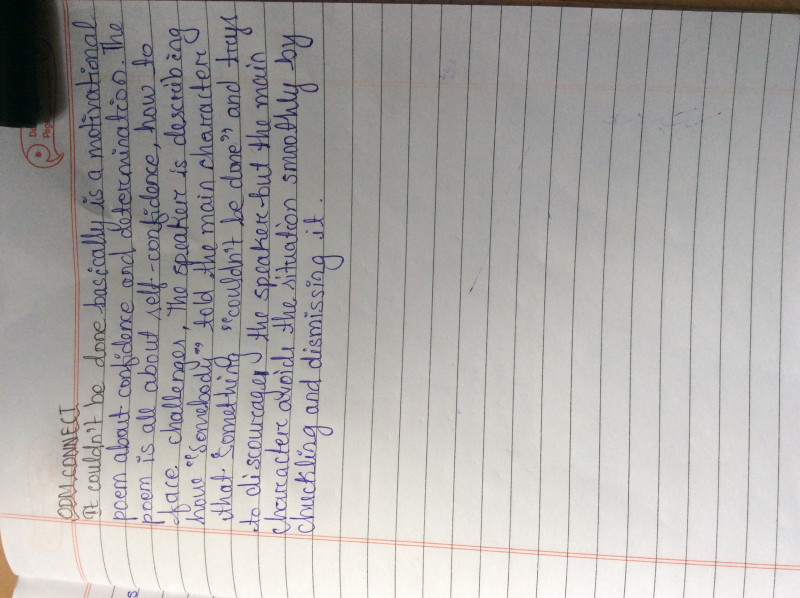 ODM CONNECT
It couldn't be done bascically is a motivational
poem about confidence and determination. The
poem is all about self-confidence, how to
face challenges, The speaker is describing
how "Somebody" told the main character
that Something "couldn't be done" and trys
to discourage the speaker but the main
character avoids the situation smoothly by
chuckling and dismissing it.